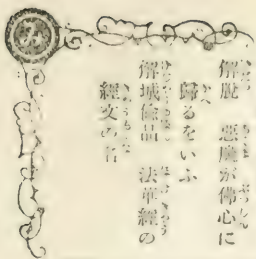 解脱 惡魔が佛心に
歸るをいふ
解城喩品 法華經の
經文の名